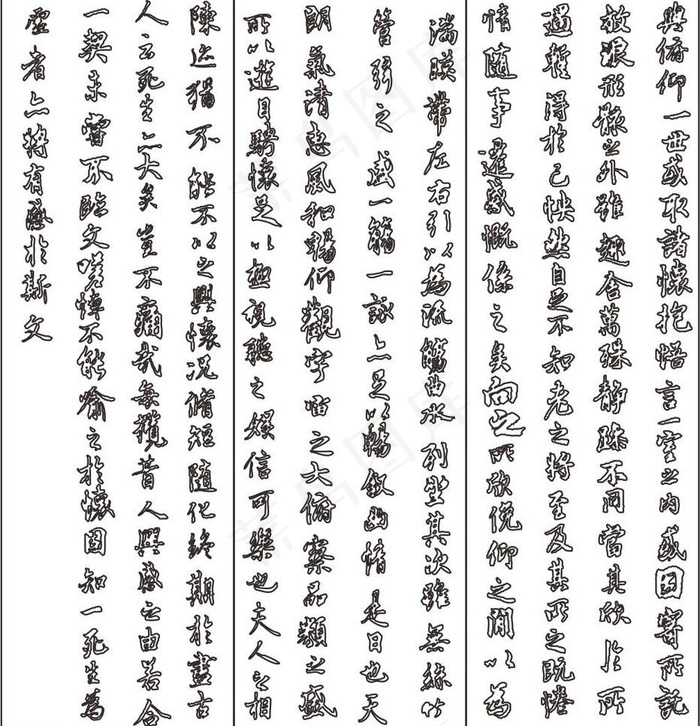 與俯仰一世或取諸懷抱悟言一室之內或因寄所託
放浪形骸之外雖趣舍萬殊靜躁不同當其欣於所
遇暫得於己怏然自足不知老之將至及其所之既惓
情隨事遷感慨係之矣向之所欣俛仰之間以為
湍暎帶左右引以為流觴曲水列坐其次雖無絲竹
管弦之盛一觴一詠亦足以暢敘幽情是日也天
朗氣清惠風和暢仰觀宇宙之大俯察品類之盛
所以遊目騁懷足以極視聽之娛信可樂也夫人之相
陳迹猶不能不以之興懷況脩短隨化終期於盡古
人云死生亦大矣豈不痛哉每攬昔人興感之由若合
一契未嘗不臨文嗟悼不能喻之於懷固知一死生為
虛者亦將有感於斯文